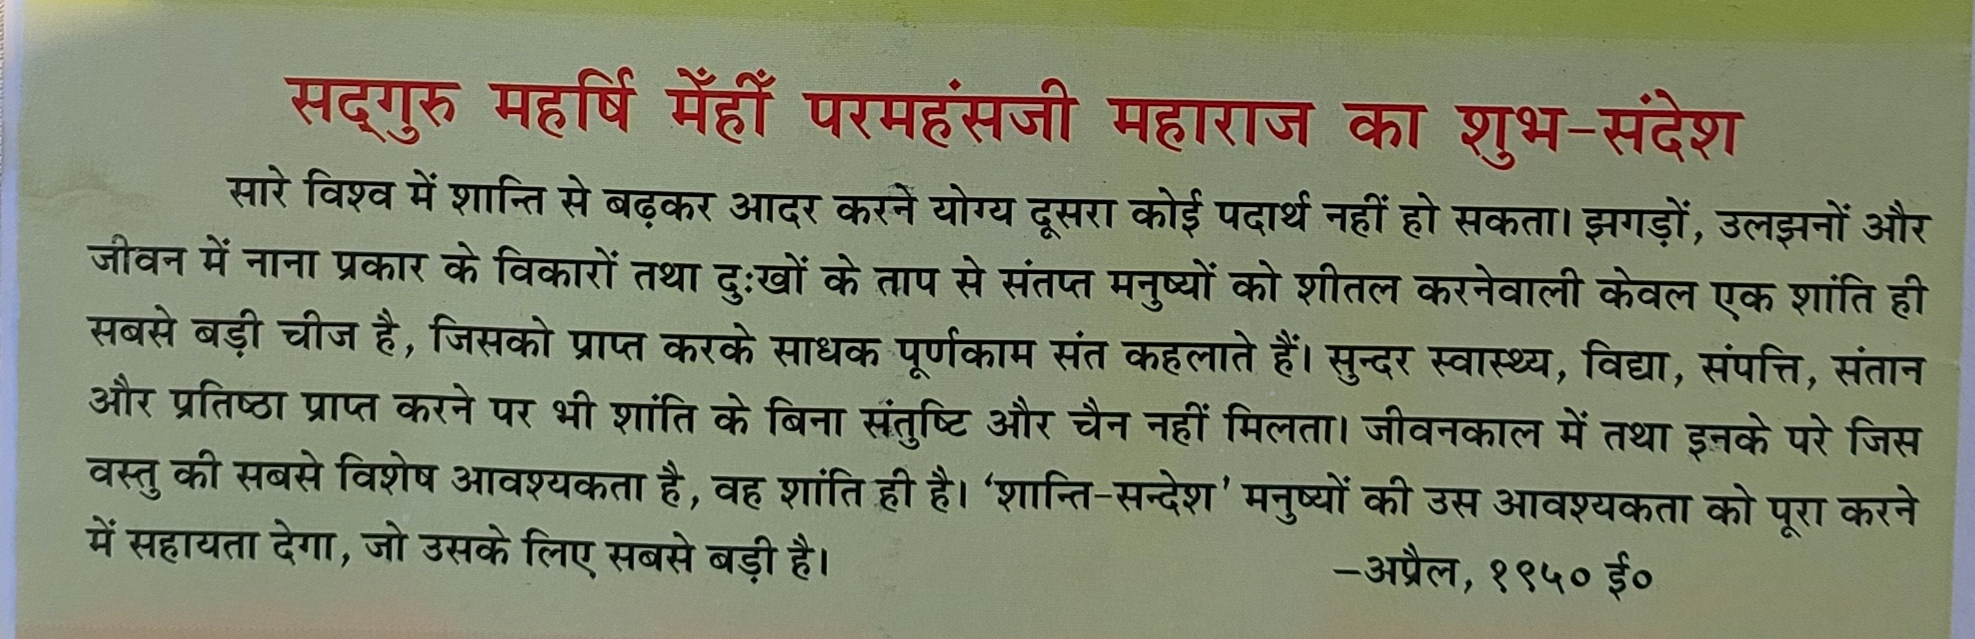 सद्‌गुरु महर्षि मेँहीँ परमहंसजी महाराज का शुभ-संदेश
सारे विश्व में शान्ति से बढ़कर आदर करने योग्य दूसरा कोई पदार्थ नहीं हो सकता। झगड़ों, उलझनों और
जीवन में नाना प्रकार के विकारों तथा दुःखों के ताप से संतप्त मनुष्यों को शीतल करनेवाली केवल एक शांति ही
सबसे बड़ी चीज है, जिसको प्राप्त करके साधक पूर्णकाम संत कहलाते हैं। सुन्दर स्वास्थ्य, विद्या, संपत्ति, संतान
और प्रतिष्ठा प्राप्त करने पर भी शांति के बिना संतुष्टि और चैन नहीं मिलता। जीवनकाल में तथा इनके परे जिस
वस्तु की सबसे विशेष आवश्यकता है, वह शांति ही है। ‘शान्ति-सन्देश’ मनुष्यों की उस आवश्यकता को पूरा करने
में सहायता देगा, जो उसके लिए सबसे बड़ी है।
–अप्रैल, १९५० ई०